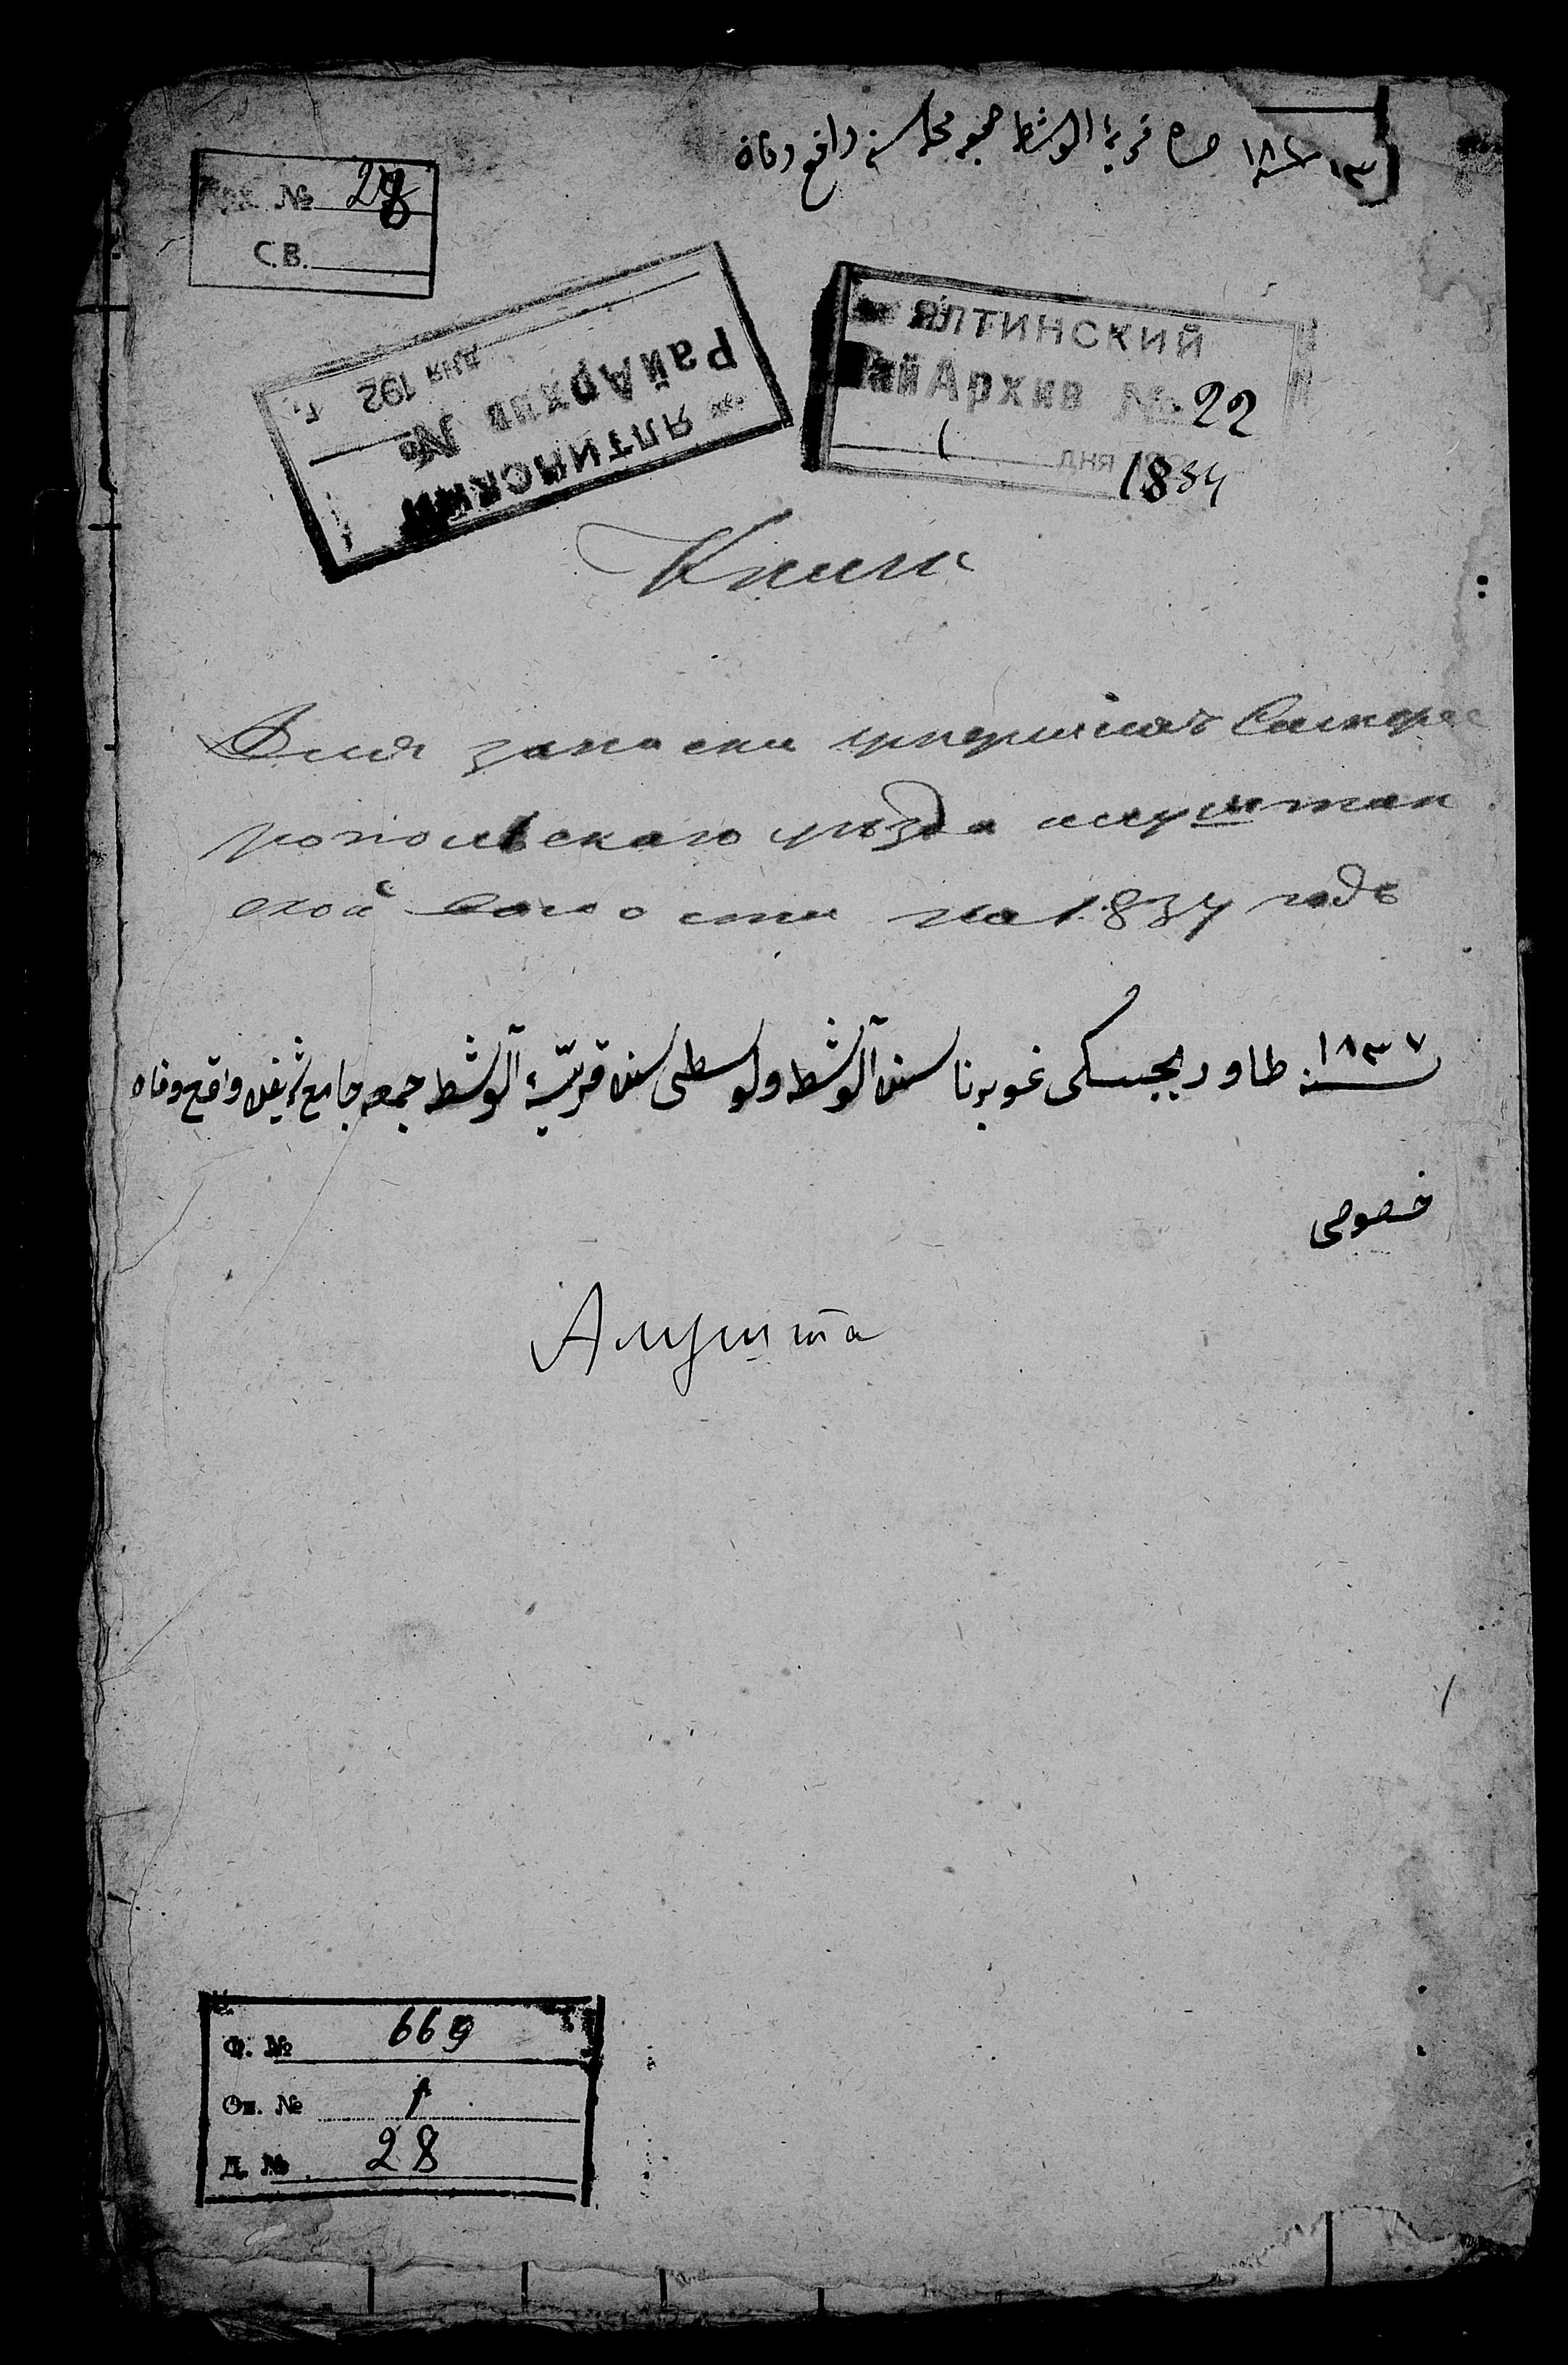 قريهٔ الوشط جمعه محله سنه واقع وفاة
№ 28
С.В.
ЯЛТИНСКИЙ
РайАрхив №
дня 192 г.
ЯЛТИНСКИЙ
РайАрхив № 22
дня 1834
Книга
Для записки умершихъ Симферо
польскаго уѣзда алуштин
ской волости на 1837 годъ
سنه ١٨٣٧ طاوريچيسكى غوبرناسنڭ آلوشطه ولوسطى سنڭ قريهٔ آلوشطه جمعه جامع شريفنڭ واقع وفاه
خصوصى
Алушта
Ф. № 669
Оп. № 1
Д. № 28